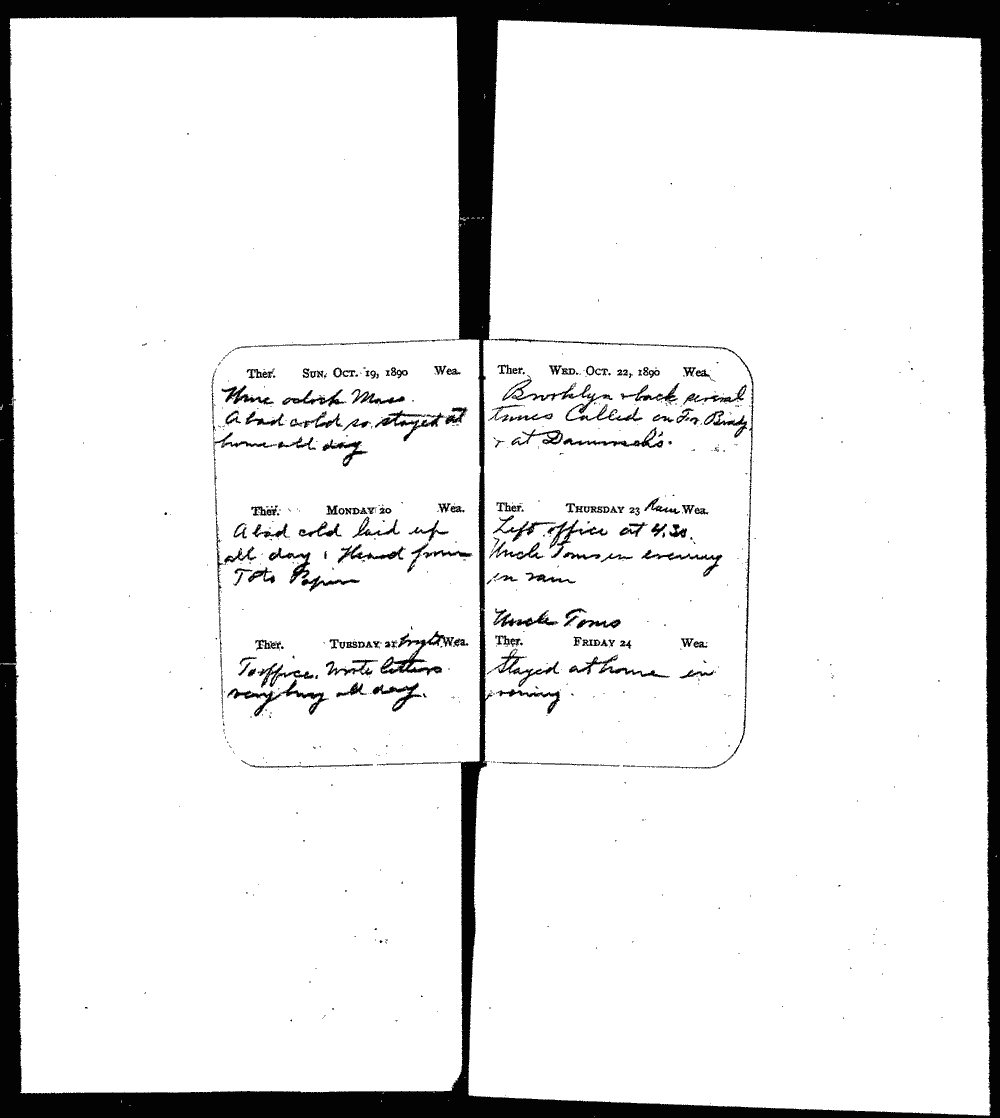 Ther. SUN. OCT. 19, 1890 Wea.
Nine oclock Mass.
A bad cold so stayed at
home all day
Ther. MONDAY 20 Wea.
A bad cold laid up
all day. Heard from
Ther. TUESDAY 21 bright Wea.
To office. Wrote letters
very busy all day.
Ther. WED. OCT. 22, 1890 Wea.
Brooklyn & back several
times Called on Fr. Brady
& at
Ther. THURSDAY 23 Rain Wea.
Left office at 4.30.
Uncle Toms in evening
in rain
Uncle Toms
Ther. FRIDAY 24 Wea.
Stayed at home in
evening.